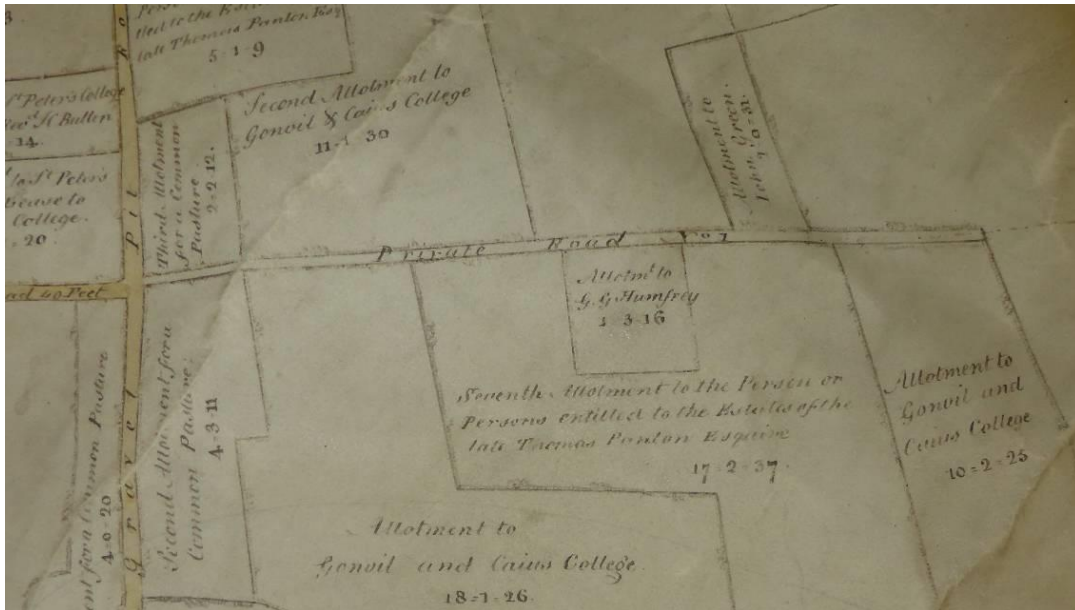 tled to the Estates
late Thomas Panton Esq
5=1=9
St Peter's College
Revd H Bullen
14.
to St Peters
Lease to
College.
20
Third Allotment
for a Common
Pasture
2=2=12.
Second Allotment to
Gonvil & Caius College
11=1=30
Allotment to
John Green
Private Road
Allotmt to
G. G. Humfrey
1=3=16
Feet
Gravel Pit
Common Pasture
4=0=20
Second Allotment for a
Common Pasture.
4=3=11
Seventh Allotment to the Person or
Persons entitled to the Estates of the
late Thomas Panton Esquire
17=2=37.
Allotment to
Gonvil and
Caius College
10=2=25
Allotment to
Gonvil and Caius College.
18=1=26.